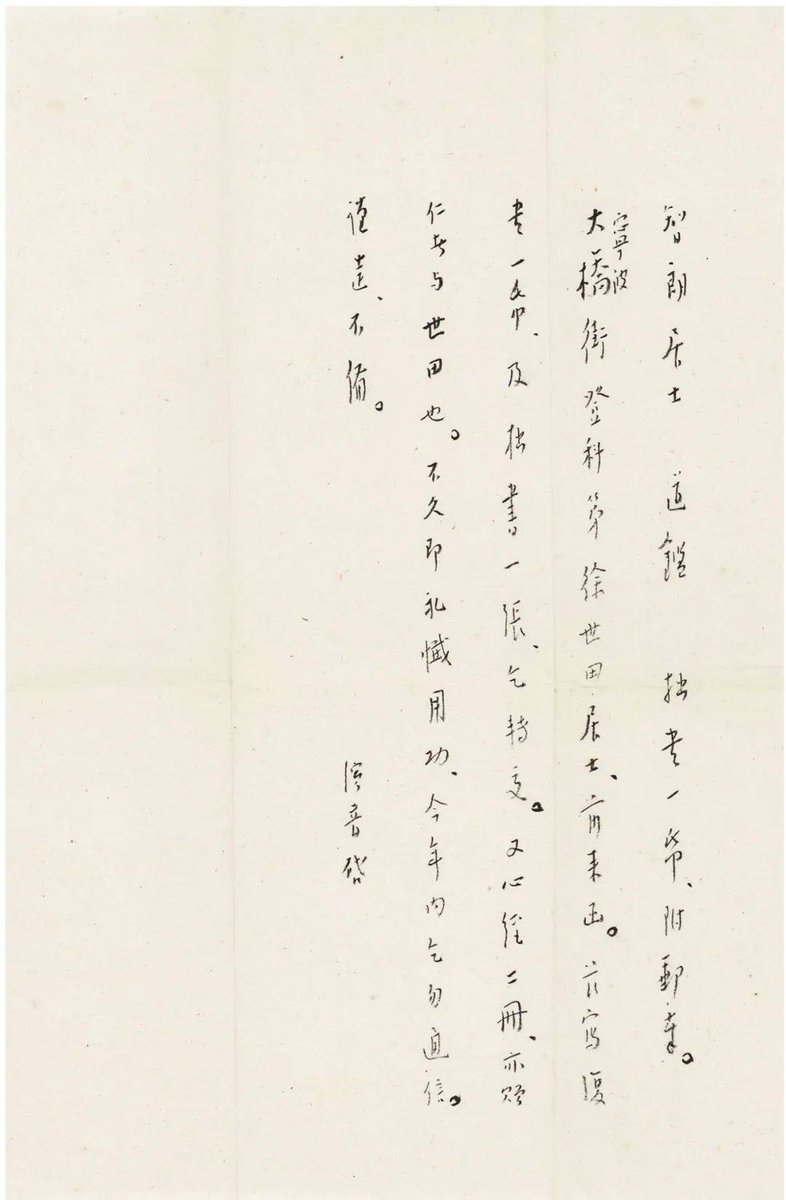 智朗居士 道鑑 拙书一帋、附郵奉。
寧波
大橋街登科第徐世田居士、前来函。兹寫復
书一帋、及拙書一張、乞轉交。又心經二冊、亦贈
仁者与世田也。不久即礼懺用功、今年内乞勿通信。
謹達、不備。
演音啓